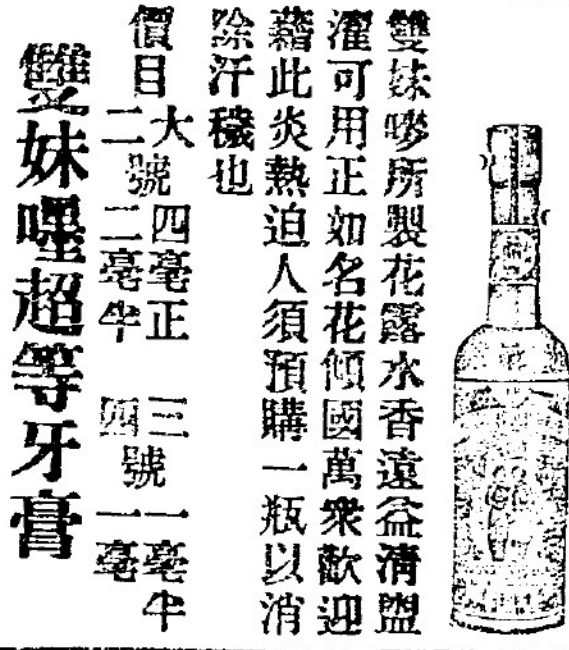 雙妹嘜所製花露水香遠益清盥
濯可用正如名花傾國萬衆歡迎
藉此炎熱迫人須預購一瓶以消
除汗穢也
價目 大二號 四毫正 二毫半 三四號 一毫半 一毫
雙妹嘜超等牙膏